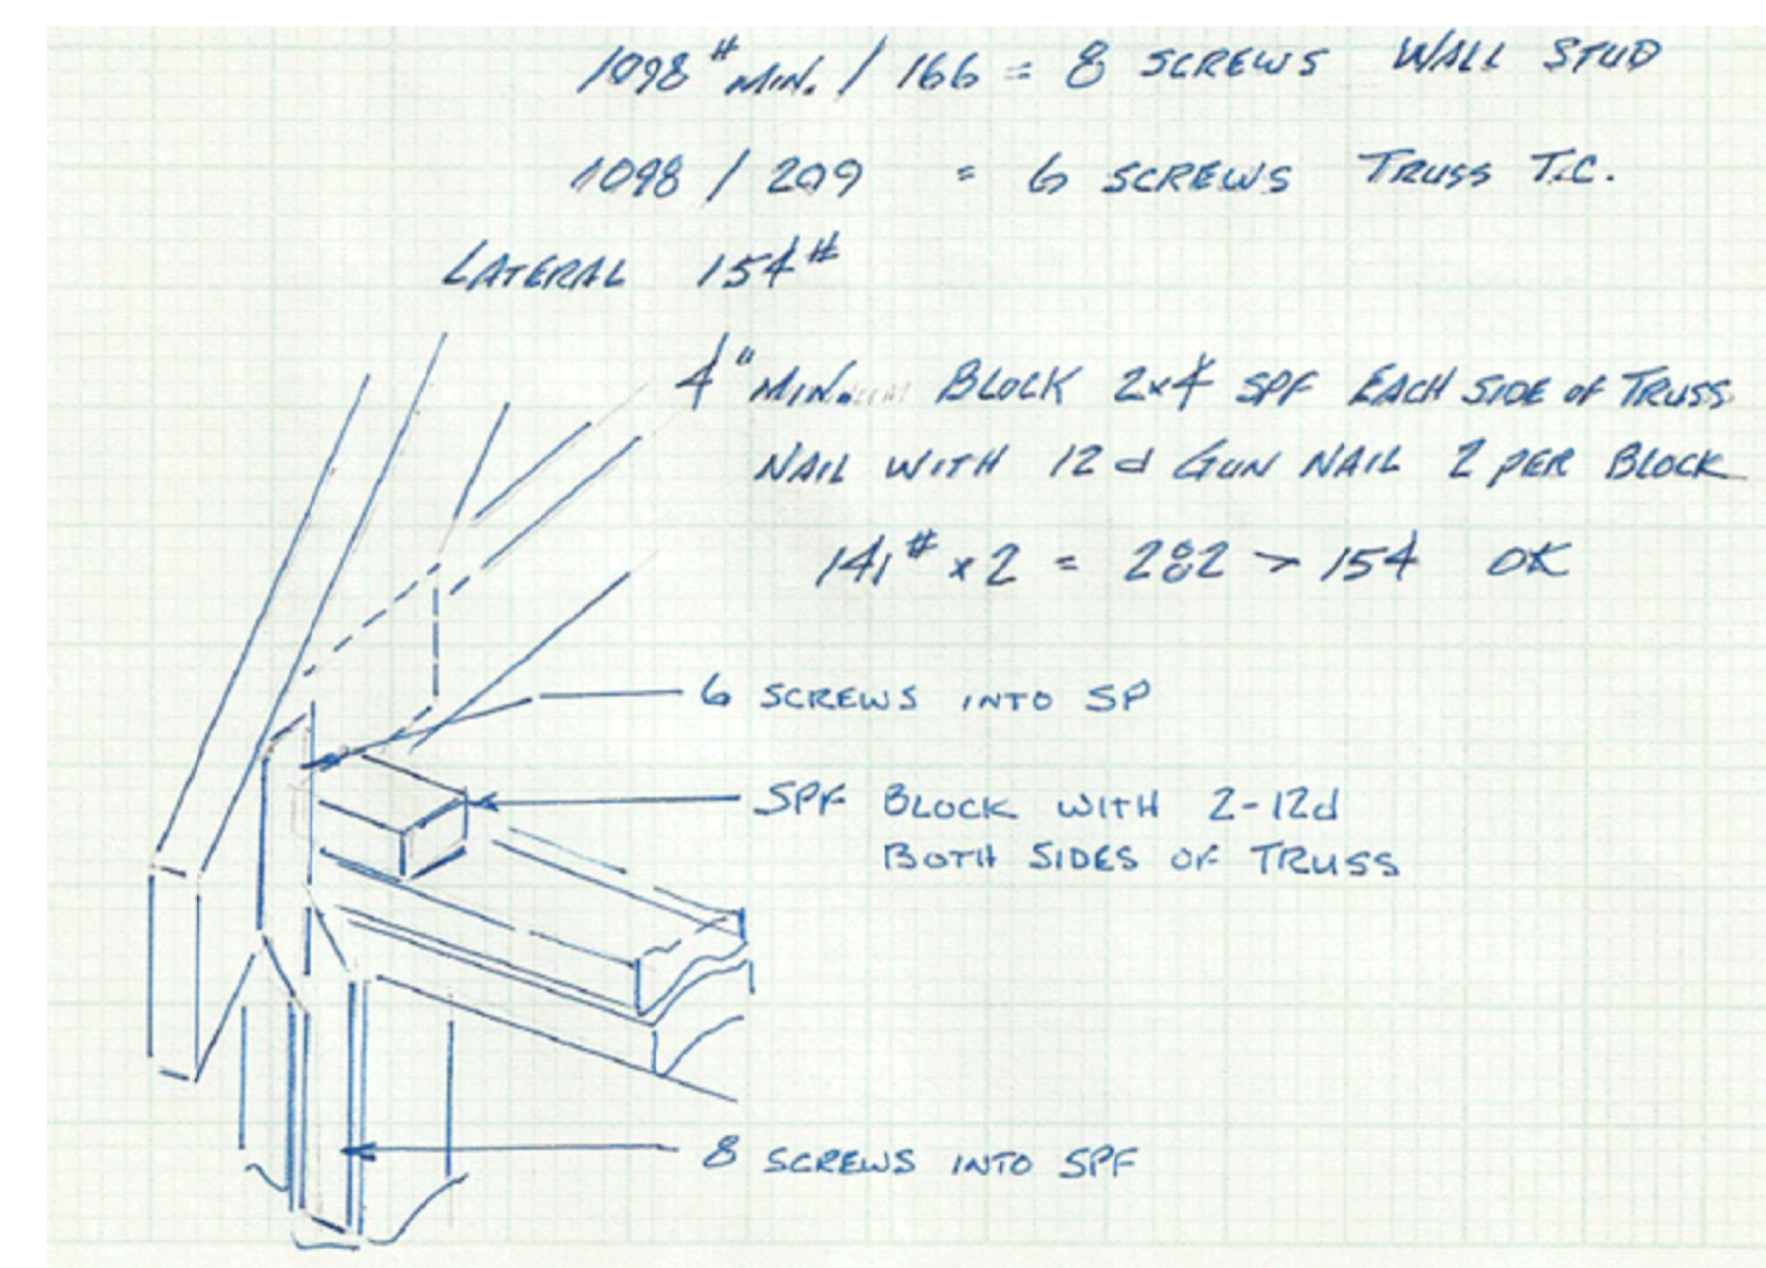 1098# MIN. / 166 = 8 SCREWS WALL STUD
1098 / 209 = 6 SCREWS TRUSS T.C.
LATERAL 154#
4" MIN. BLOCK 2x4 SPF EACH SIDE OF TRUSS
NAIL WITH 12d GUN NAIL 2 PER BLOCK
141# x 2 = 282 > 154 OK
6 SCREWS INTO SP
SPF BLOCK WITH 2-12d
BOTH SIDES OF TRUSS
8 SCREWS INTO SPF